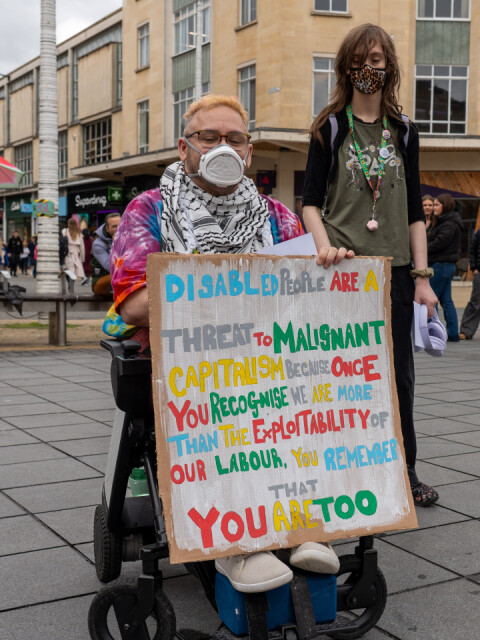 Superdrug
DISABLED PEOPLE ARE A
THREAT TO MALIGNANT
CAPITALISM BECAUSE ONCE
YOU RECOGNISE WE ARE MORE
THAN THE EXPLOITABILITY OF
OUR LABOUR, YOU REMEMBER
THAT
YOU ARE TOO